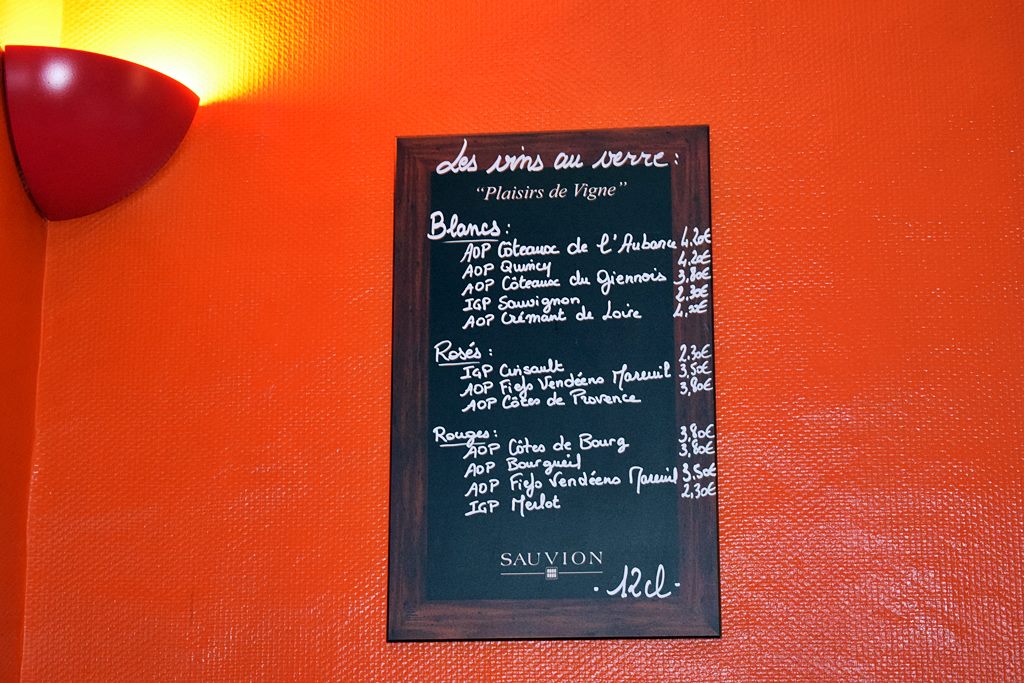 Les vins au verre :
“Plaisirs de Vigne”
Blancs :
AOP Côteaux de l'Aubance 4,20€
AOP Quincy 4,20€
AOP Côteaux du Giennois 3,80€
IGP Sauvignon 2.30€
AOP Crémant de Loire
Rosés :
IGP Cinsault 2.30€
AOP Fiefs Vendéens Mareuil 3,50€
AOP Côtes de Provence 3,80€
Rouges :
AOP Côtes de Bourg 3,80€
AOP Bourgueil 3,80€
AOP Fiefs Vendéens Mareuil 3.50€
IGP Merlot 2,30€
SAUVION
. 12cl .